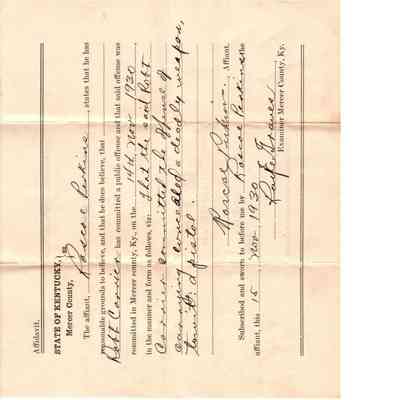 Affidavit.
STATE OF KENTUCKY,
Mercer County,
The affiant, Roscoe Perkins, states that he has
reasonable grounds to believe, and that he does believe, that
Robt Carrier has committed a public offense and that said offense was
committed in Mercer county, Ky., on the 14th Nov 1930
in the manner and form as follows, viz: that the said Robt
Carrier committed the offense of
carrying concealed a deadly weapon,
towit: a pistol.
Roscoe Perkins Affiant.
Subscribed and sworn to before me by Roscoe Perkins the
affiant, this 15 Nov 1930
Graves
Examiner Mercer County, Ky.